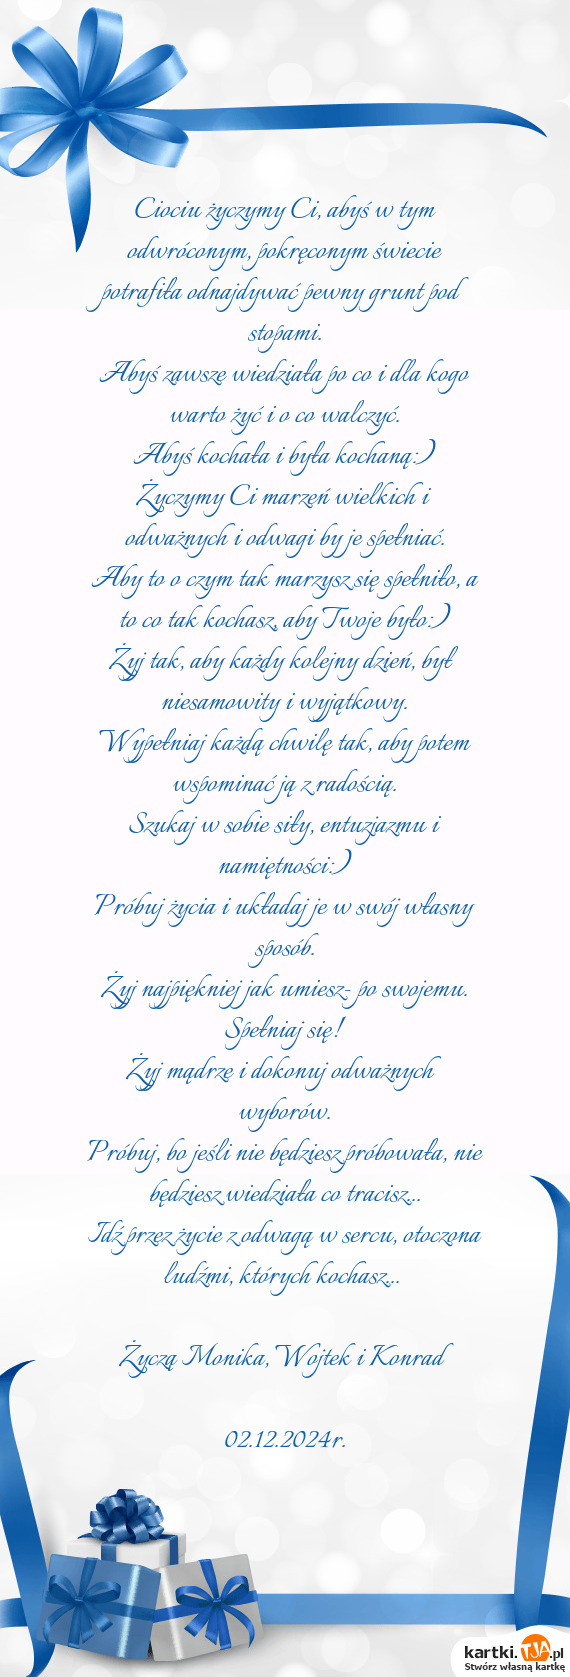 Ciociu życzymy Ci, abyś w tym
odwróconym, pokręconym świecie
potrafiła odnajdywać pewny grunt pod
stopami.
Abyś zawsze wiedziała po co i dla kogo
warto żyć i o co walczyć.
Abyś kochała i była kochaną:)
Życzymy Ci marzeń wielkich i
odważnych i odwagi by je spełniać.
Aby to o czym tak marzysz się spełniło, a
to co tak kochasz, aby Twoje było:)
Żyj tak, aby każdy kolejny dzień, był
niesamowity i wyjątkowy.
Wypełniaj każdą chwilę tak, aby potem
wspominać ją z radością.
Szukaj w sobie siły, entuzjazmu i
namiętności:)
Próbuj życia i układaj je w swój własny
sposób.
Żyj najpiękniej jak umiesz- po swojemu.
Spełniaj się!
Żyj mądrze i dokonuj odważnych
wyborów.
Próbuj, bo jeśli nie będziesz próbowała, nie
będziesz wiedziała co tracisz...
Idź przez życie z odwagą w sercu, otoczona
ludźmi, których kochasz...
Życzą Monika, Wojtek i Konrad
02.12.2024r.
kartki.TJA.pl
Stwórz własną kartkę